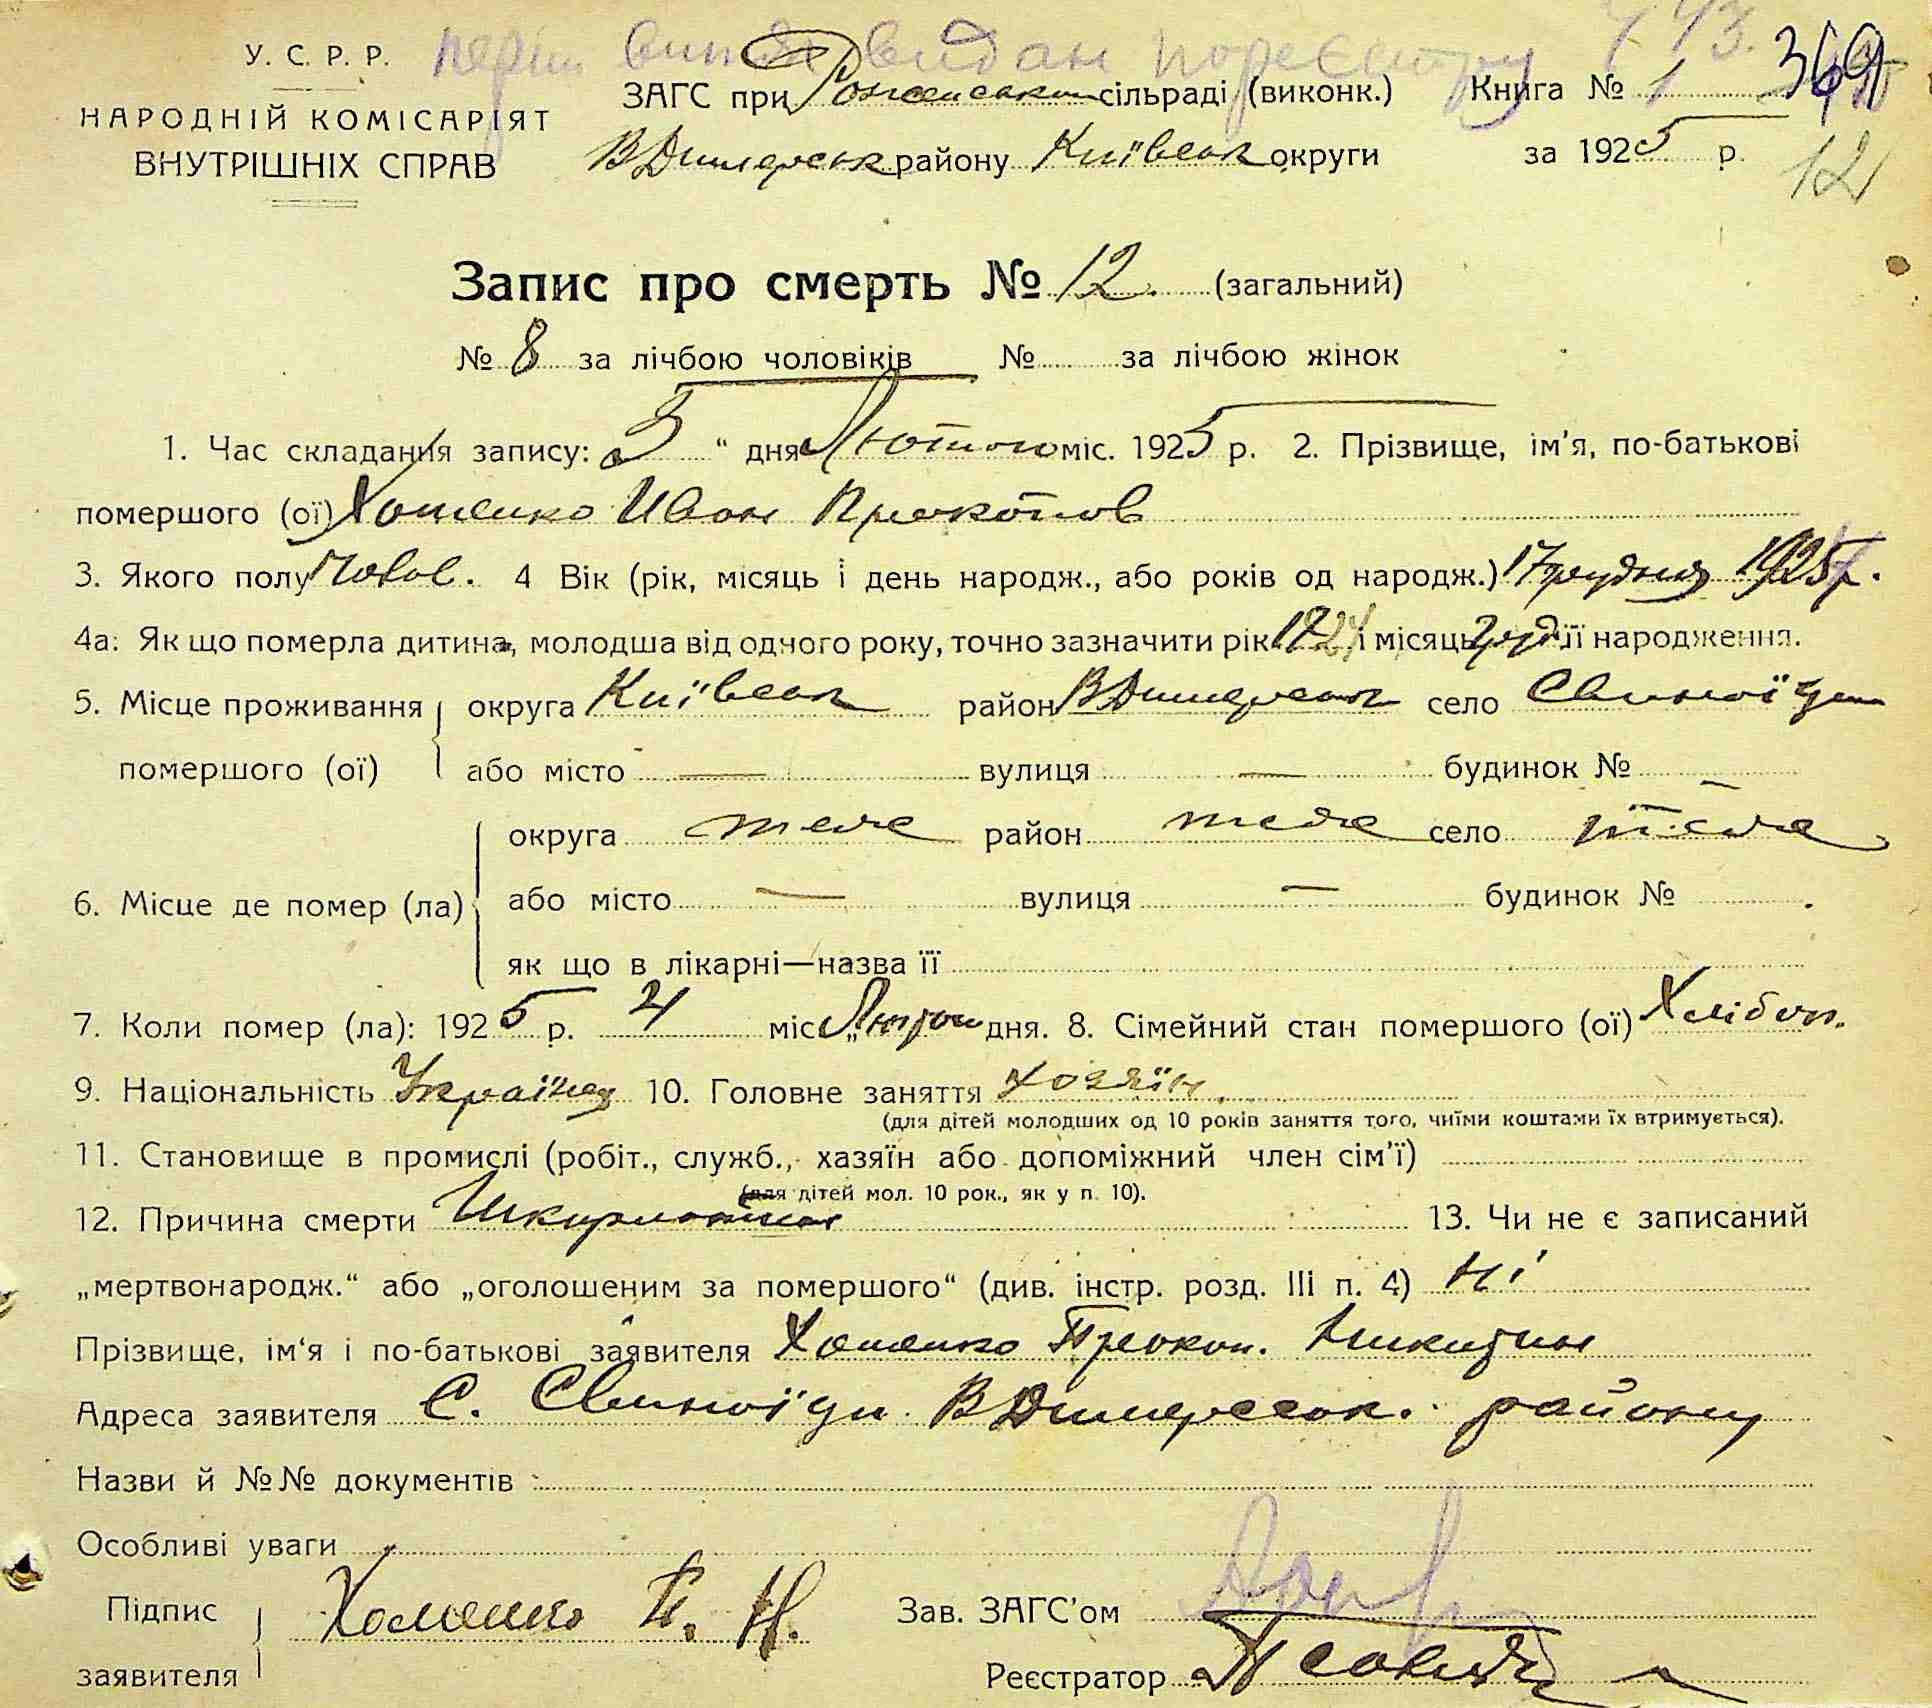 У. С. Р. Р.
НАРОДНІЙ КОМІСАРІЯТ
ВНУТРІШНІХ СПРАВ
видан по реєстру 443.
ЗАГС при сільраді (виконк.) Книга № 1 369
В Димерськ району Київськ округи за 1925 р. 12
Запис про смерть № 12. (загальний)
№ 8 за лічбою чоловіків № за лічбою жінок
1. Час складання запису: 5 " дня Лютого міс. 1925 р. 2. Прізвище, ім'я, по-батькові
помершого (ої) Хоменко Иван Прокопов
3. Якого полу Чолов. 4 Вік (рік, місяць і день народж., або років од народж.) 17 грудня 1925 р.
4а: Як що померла дитина, молодша від одного року, точно зазначити рік 1924 і місяць груд її народження.
5. Місце проживання округа Київськ район В Димерськ село Свиноїди
помершого (ої) або місто — вулиця — будинок № —
округа теж район теж село теж
6. Місце де помер (ла) або місто — вулиця — будинок №
як що в лікарні—назва її
7. Коли помер (ла): 1925 р. 4 міс. „Лютого дня. 8. Сімейний стан помершого (ої) Хлібор.
9. Національність Українец 10. Головне заняття хозяїн.
(для дітей молодших од 10 років заняття того, чиїми коштами їх втримується).
11. Становище в промислі (робіт., служб., хазяїн або допоміжний член сім'ї)
(для дітей мол. 10 рок., як у п. 10).
12. Причина смерти 13. Чи не є записаний
„мертвонародж.“ або „оголошеним за помершого“ (див. інстр. розд. III п. 4) Ні
Прізвище, ім'я і по-батькові заявителя Хоменко Прокоп. Никитин
Адреса заявителя С. Свиноїди В Димерськ. району
Назви й №№ документів
Особливі уваги
Підпис Хоменко П. Н. Зав. ЗАГС'ом
заявителя Реєстратор